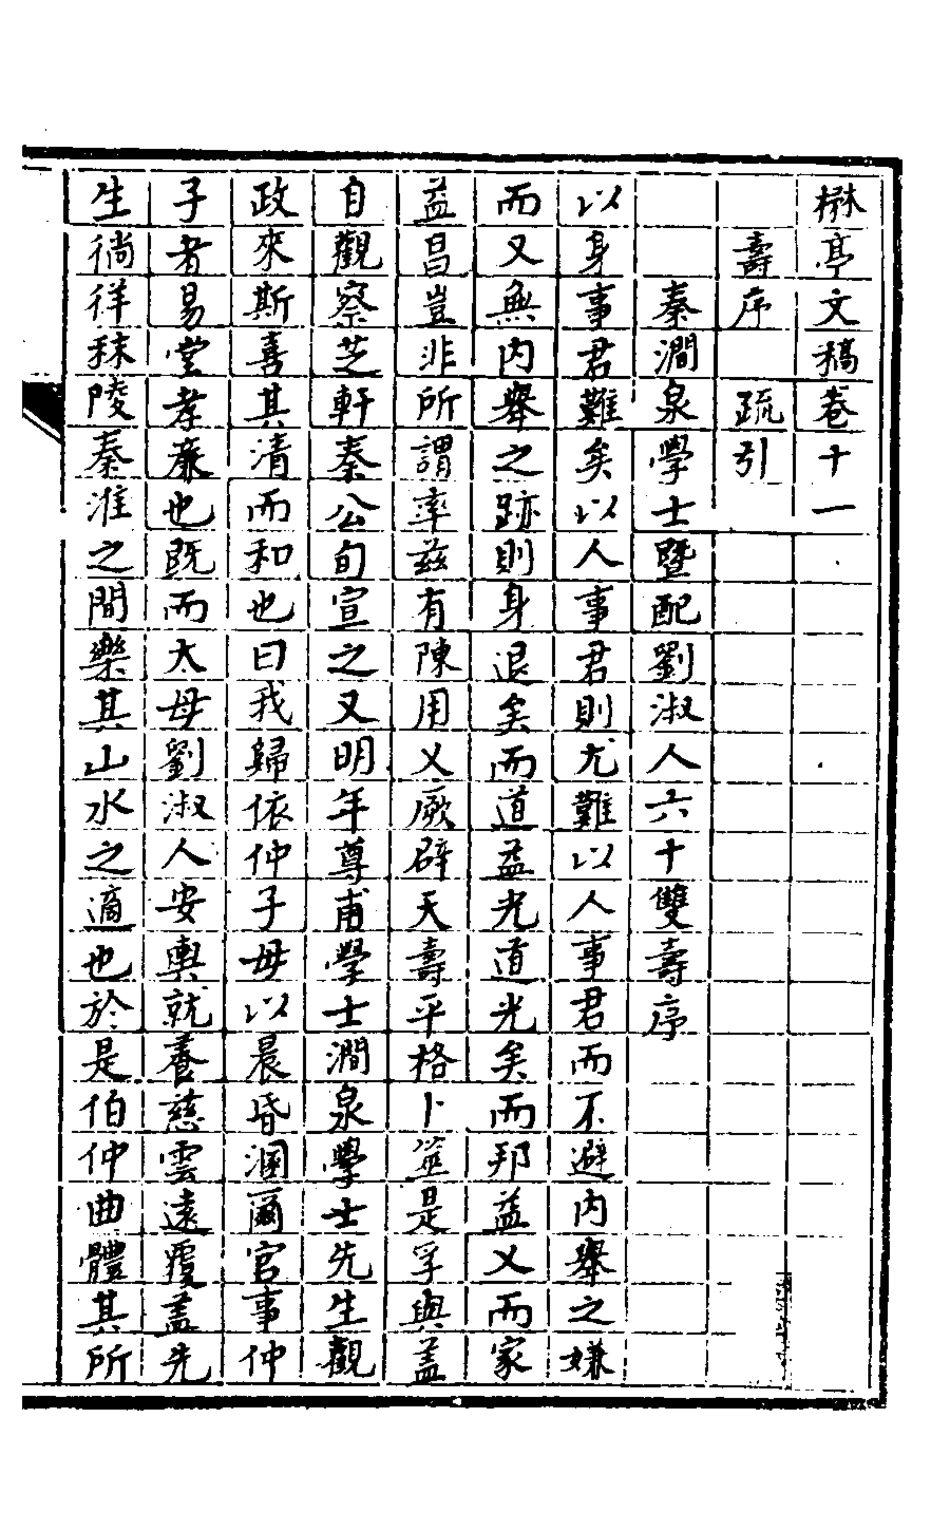 楙亭文稿卷十一
壽序　疏引
秦澗泉學士暨配劉淑人六十雙壽序
以身事君難矣以人事君則尤難以人事君而不避內舉之嫌
而又無內舉之跡則身退矣而道益光道光矣而邦益乂而家
益昌豈非所謂率茲有陳用乂厥辟天壽平格卜筮是孚與蓋
自觀察芝軒秦公旬宣之又明年尊甫學士澗泉學士先生觀
政來斯喜其清而和也曰我歸依仲子毋以晨昏溷爾官事仲
子者易堂孝廉也既而太母劉淑人安輿就養慈雲遠覆蓋先
生徜徉秣陵秦淮之間樂其山水之適也於是伯仲曲體其所